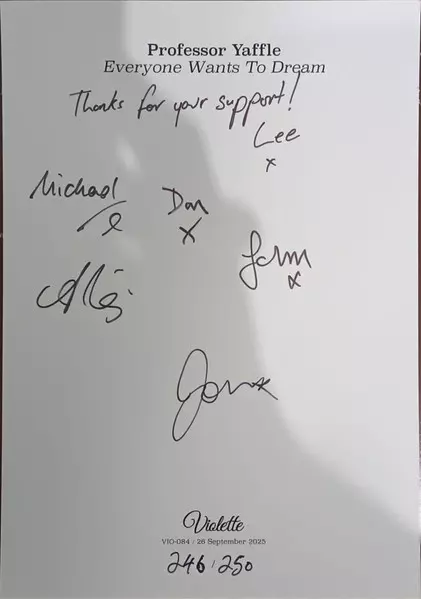 Professor Yaffle
Everyone Wants To Dream
Thanks for your support!
Lee
x
Michael
Dan
x
John
x
Violette
VIO-084 / 26 September 2025
246 / 250